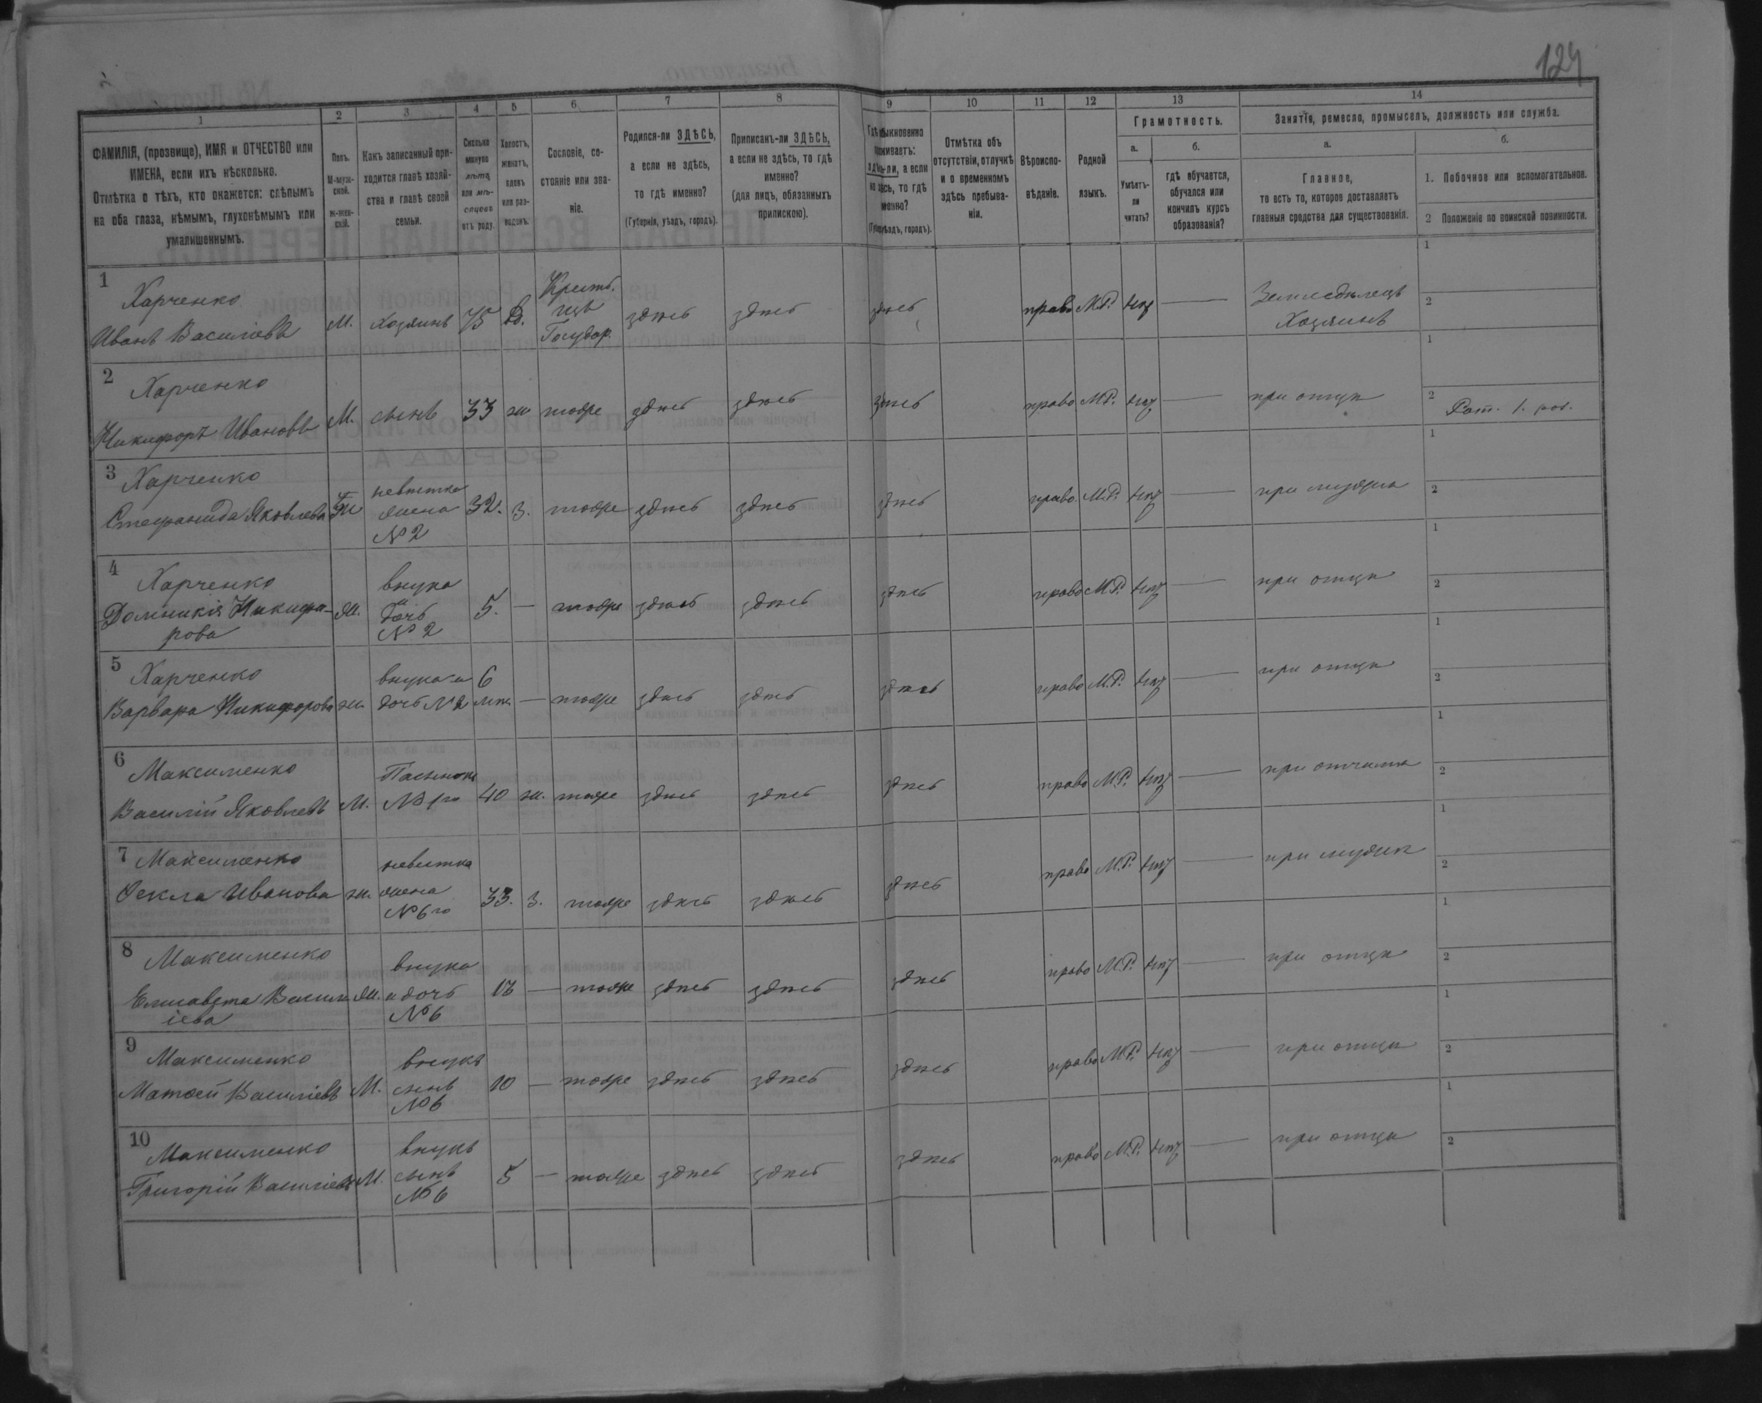 124
1 2 3 4 5 6 7 8 9 10 11 12 13 14
ФАМИЛІЯ, (прозвище), ИМЯ и ОТЧЕСТВО или
ИМЕНА, если ихъ нѣсколько.
Отмѣтка о тѣхъ, кто окажется: слѣпымъ
на оба глаза, нѣмымъ, глухонѣмымъ или
умалишеннымъ.
Полъ.
М-мужской.
Ж-женскій.
Какъ записанный приходится главѣ хозяйства и главѣ своей
семьи.
Сколько
минуло
лѣтъ
или мѣсяцевъ
отъ роду.
Холостъ,
женатъ,
вдовъ
или разведенъ.
Сословіе, состояніе или званіе.
Родился-ли ЗДѢСЬ,
а если не здѣсь,
то гдѣ именно?
(Губернія, уѣздъ, городъ).
Приписанъ-ли ЗДѢСЬ,
а если не здѣсь, то гдѣ
именно?
(для лицъ, обязанныхъ
припиской).
Отмѣтка объ
отсутствіи, отлучкѣ
и о временномъ
здѣсь пребываніи.
Вѣроисповѣданіе.
Родной
языкъ.
Грамотность.
а.
Умѣетъ-ли
читать?
б.
гдѣ обучается,
обучался или
кончилъ курсъ
образованія?
Занятіе, ремесло, промыселъ, должность или служба.
а.
Главное,
то есть то, которое доставляетъ
главныя средства для существованія.
б.
1. Побочное или вспомогательное.
2 Положеніе по воинской повинности.
1 Харченко
Иванъ Васильевъ М. Хозяинъ 75 В. Крест. Государ. здѣсь здѣсь здѣсь право М.Р. нѣт — Земледѣлецъ
Хозяинъ
2 Харченко
Никифоръ Ивановъ М. сынъ 33 ж. тоже здѣсь здѣсь здѣсь право М.Р. нѣт — при отцѣ
3 Харченко
Стефанида Яковлева Ж невѣстка
жена
№ 2 32. з. тоже здѣсь здѣсь здѣсь право М.Р. нѣт — при мужѣ
4 Харченко
Домникія Никифорова ж. внука
и дочь
№ 2 5. — тоже здѣсь здѣсь здѣсь право М.Р. нѣт — при отцѣ
5 Харченко
Варвара Никифорова ж. внука и
дочь № 2 6 — тоже здѣсь здѣсь здѣсь право М.Р. нѣт — при отцѣ
6 Максименко
Василій Яковлевъ М. Пасынокъ
№ 1го 40 ж. тоже здѣсь здѣсь здѣсь право М.Р. нѣт — при отчимѣ
7 Максименко
Ѳекла Иванова ж. невѣстка
жена
№ 6го 33. з. тоже здѣсь здѣсь здѣсь право М.Р. нѣт — при мужѣ
8 Максименко
Елисавета Василіева ж. внука
и дочь
№ 6 — тоже здѣсь здѣсь здѣсь право М.Р. нѣт — при отцѣ
9 Максименко
Матѳей Василіевъ М. внукъ
сынъ
№ 6 10 — тоже здѣсь здѣсь здѣсь право М.Р. нѣт — при отцѣ
10 Максименко
Григорій Василіевъ М. внукъ
сынъ
№ 6 5 — тоже здѣсь здѣсь здѣсь право М.Р. нѣт — при отцѣ